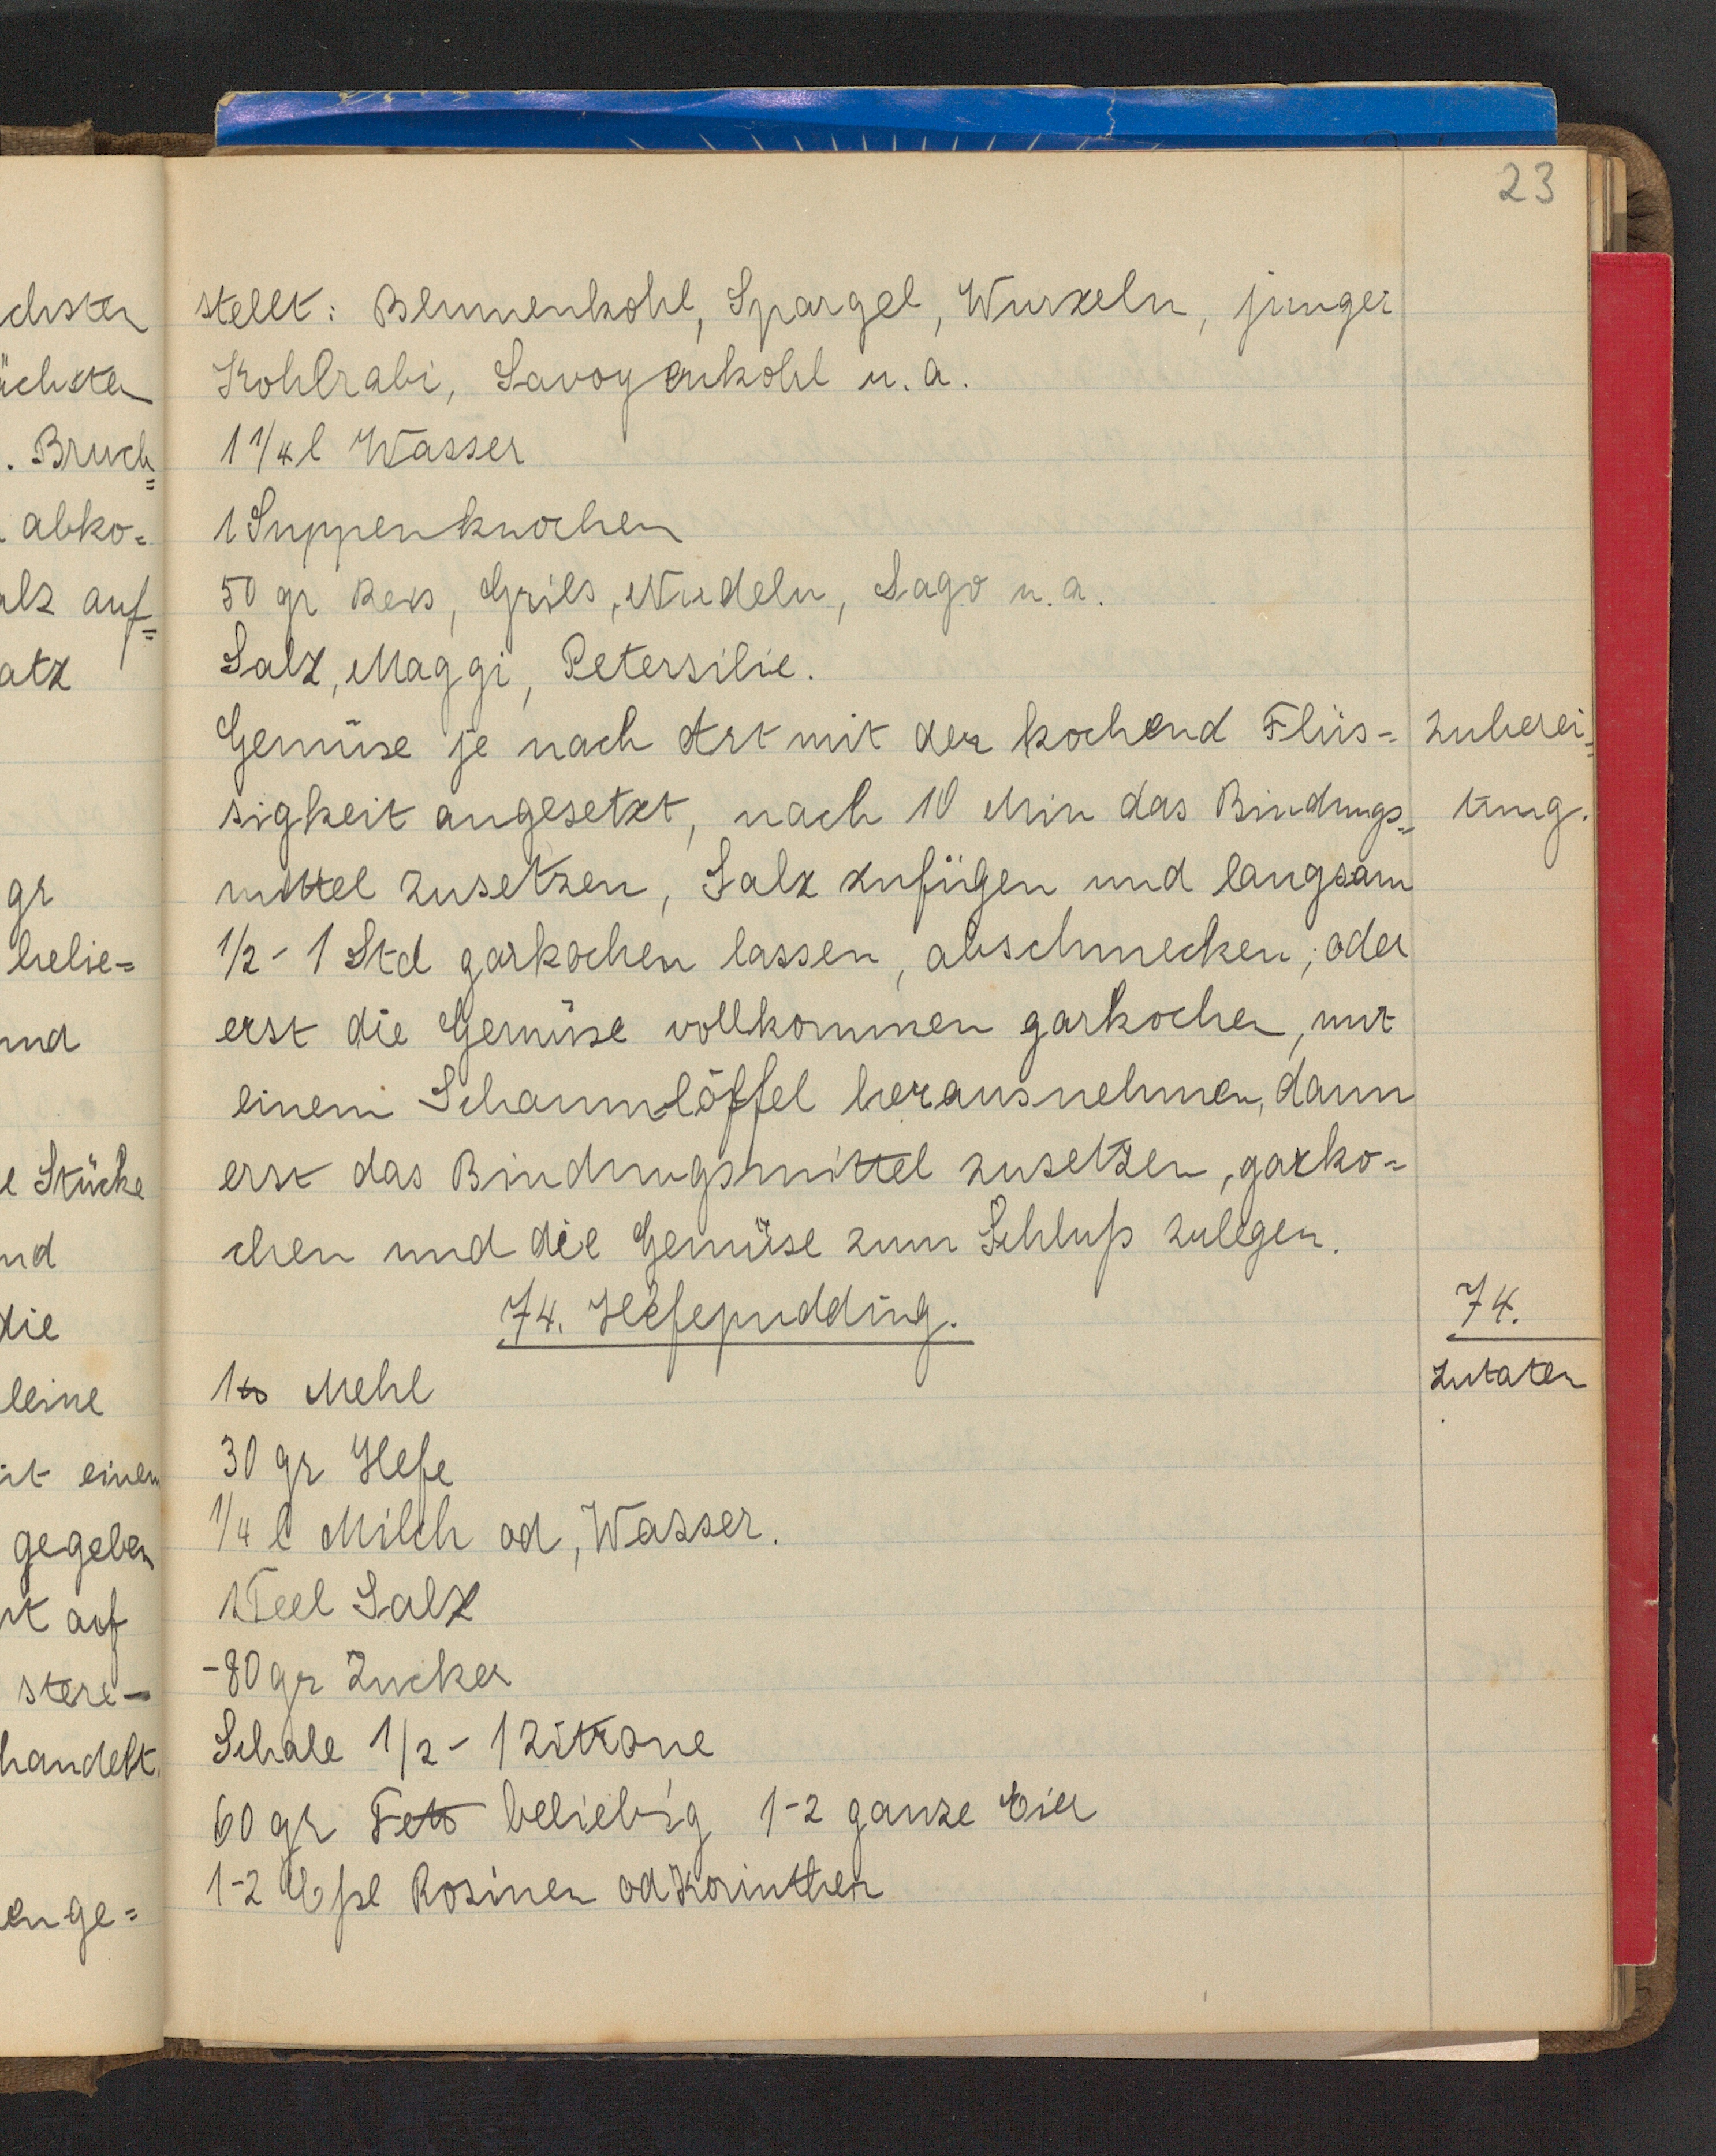 23
chsten
ächsten
. Bruch=
abko=
alz auf=
atz
gr
belie=
und
e Stücke
nd
die
leine
it einem
gegeben
rt auf
stere-
handelt.
enge=
stellt: Blumenkohl, Spargel, Wurzeln, junger
Kohlrabi, Savoyenkohl u. a.
1 1/4 l Wasser
1 Suppenknochen
50 gr Reis, Gríls, Nudeln, Sago u. a.
Salz, Maggi, Petersilie.
Gemüse je nach Art mit der kochend Flüs-
Zuberei=
sigkeit angesetzt, nach 10 Min das Bindungs=
tung.
mittel zusetzen, Salz zufügen und langsam
1/2 - 1 Std garkochen lassen, abschmecken; oder
erst die Gemüse vollkommen garkochen, mit
einem Schaumlöffel herausnehmen, dann
erst das Bindungsmittel zusetzen, garko=
chen und die Gemüse zum Schluß zulegen.
74. Hefepudding.
74.
Zutaten
1 ℔ Mehl
30 gr Hefe
1/4 l Milch od, Wasser.
1 Teel Salz
-80 gr Zucker
Schale 1/2 - 1 Zitrone
60 gr Fett beliebig 1-2 ganze Eier
1-2 Eßl Rosinen od Korinthen